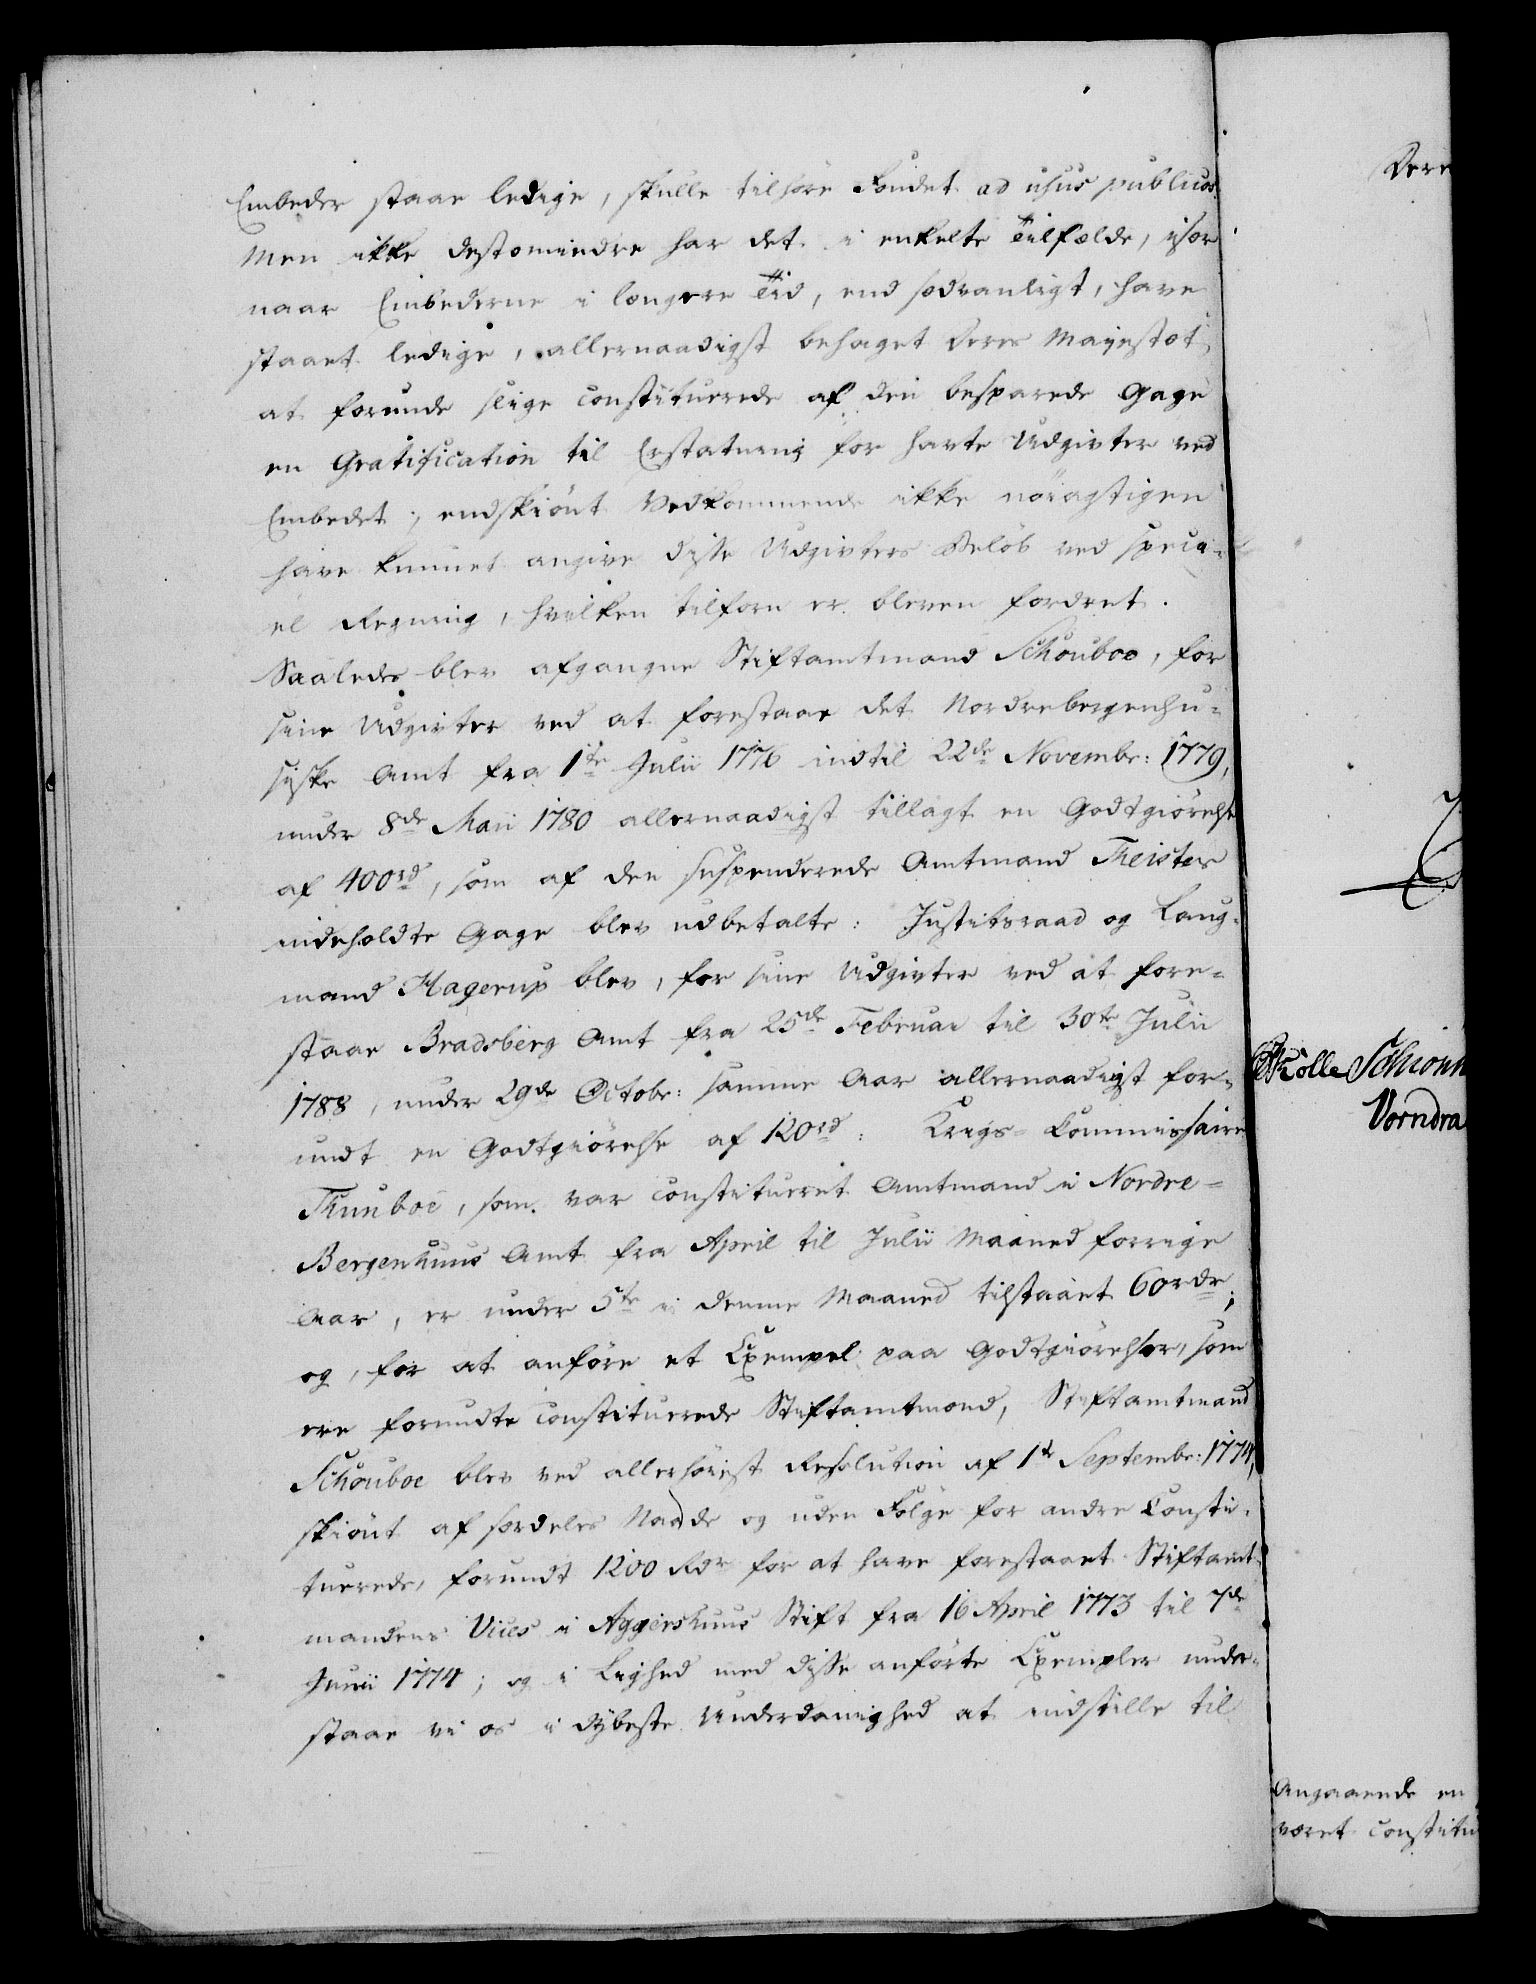 Embeder staae ledige, skulle tilhøre Fondet ad usus publicos.
Men ikke destomindre har det i enkelte Tilfælde, især
naar Embederne i længere Tid, end sædvanligt, have
staaet ledige, allernaadigst behaget Deres Majestæt
at forunde slige constituerede af den besparede Gage
en Gratification til Erstatning for havte Udgivter ved
Embedet, endskiønt Vedkommende ikke nöiagtigen
have kunnet angive disse Udgivters Beløb ved speci-
el Regning, hvilken tilforn er bleven fordret.
Saaledes blev afgangne Stiftamtmand Schouboe, for
sine Udgivter ved at forestaae det Nordrebergenhu-
siske Amt fra 1te Julii 1776 indtil 22de Novembr: 1779,
under 8de Maii 1780 allernaadigst tillagt en Godtgiörelse
af 400rd, som af den suspenderede Amtmand Theistes
indeholdte Gage blev udbetalte: Justitsraad og Laug-
mand Hagerup blev, for sine Udgivter ved at fore-
staae Bradsberg Amt fra 25de Februar til 30te Julii
1788, under 29de Octobr: samme Aar allernaadigst for-
undt en Godtgiörelse af 120rd: Krigs-Commissaire
Thunboe, som var constitueret Amtmand i Nordre-
Bergenhuus Amt fra April til Julii Maaned forrige
Aar, er under 5te i denne Maaned tilstaaet 60rdr;
og, for at anføre et Exempel paa Godtgiörelser, som
ere forundte constituerede Stiftamtmænd, Stiftamtmand
Schouboe blev ved allerhøiest Resolution af 1te Septembr: 1774,
skiönt af særdeles Naade og uden Følge for andre Consti-
tuerede, forundt 1200 Rdr for at have forestaaet Stiftamt-
mandens Vices i Aggershuus Stift fra 16 April 1773 til 7de
Junii 1774; og i Lighed med disse anførte Exempler under-
staae vi os i dybeste Underdanighed at indstille til
Dere
Kölle Schiönn
Vorndra
Angaaende en
været constitu